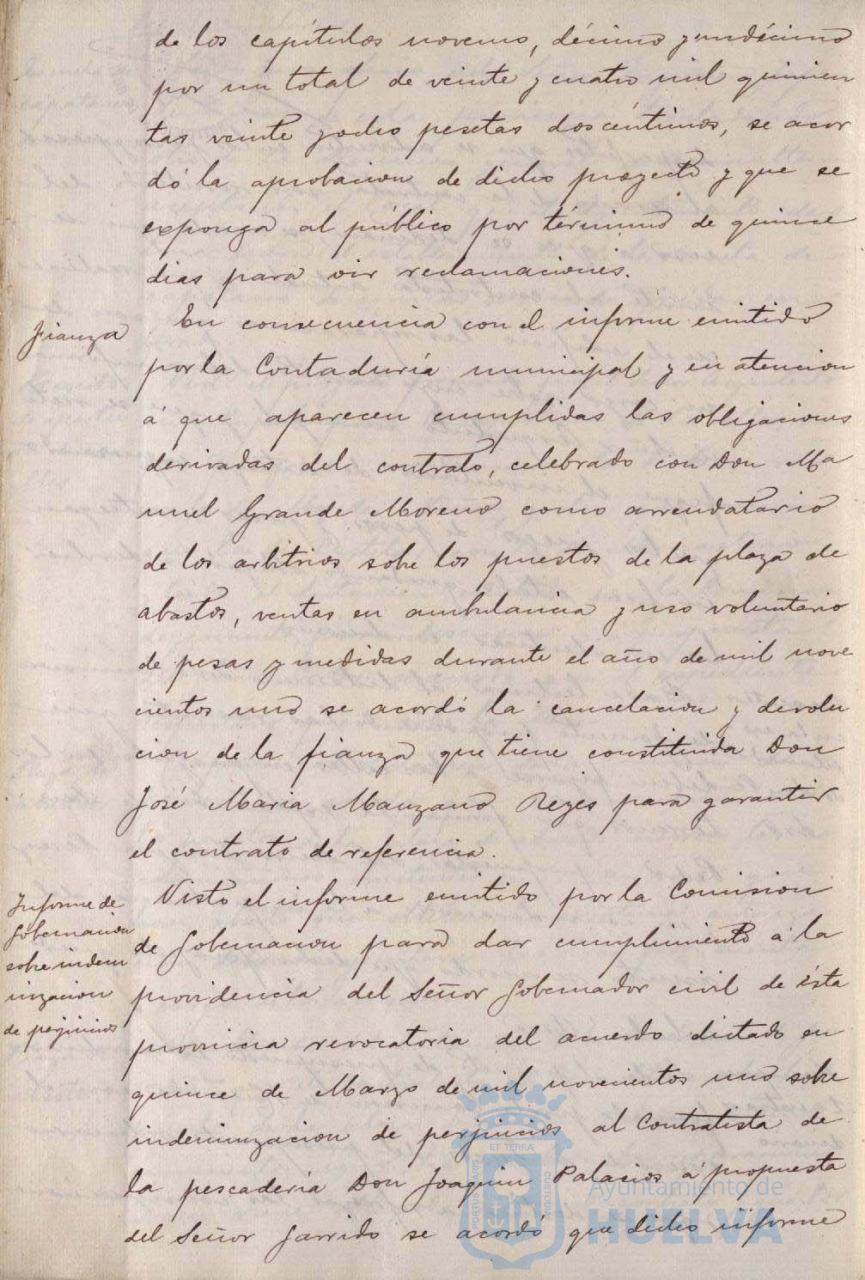 de los capítulos noveno, décimo y undécimo
por un total de veinte y cuatro mil quinien
tas veinte y ocho pesetas dos céntimos, se acor
dó la aprobacion de dicho proyecto y que se
exponga al público por término de quince
dias para oir reclamaciones.
Fianza
En consecuencia con el informe emitido
por la Contaduría municipal y en atencion
á que aparecen cumplidas las obligaciones
derivadas del contrato, celebrado con Don Ma
nuel Grande Moreno como arrendatario
de los arbitrios sobre los puestos de la plaza de
abastos, ventas en ambulancia y uso voluntario
de pesas y medidas durante el año de mil nove
cientos uno se acordó la cancelacion y devolu
cion de la fianza que tiene constituida Don
José Maria Manzano Reyes para garantir
el contrato de referencia.
Informe de
Gobernacion
sobre indem
nizacion
de perjuicios
Visto el informe emitido por la Comision
de Gobernacion para dar cumplimiento á la
providencia del Señor Gobernador civil de ésta
provincia revocatoria del acuerdo dictado en
quince de Marzo de mil novecientos uno sobre
indemnizacion de perjuicios al Contratista de
la pescadería Don Joaquin Palacios á propuesta
del Señor Garrido se acordó que dicho informe
ET TERRÆ
Ayuntamiento de
HUELVA